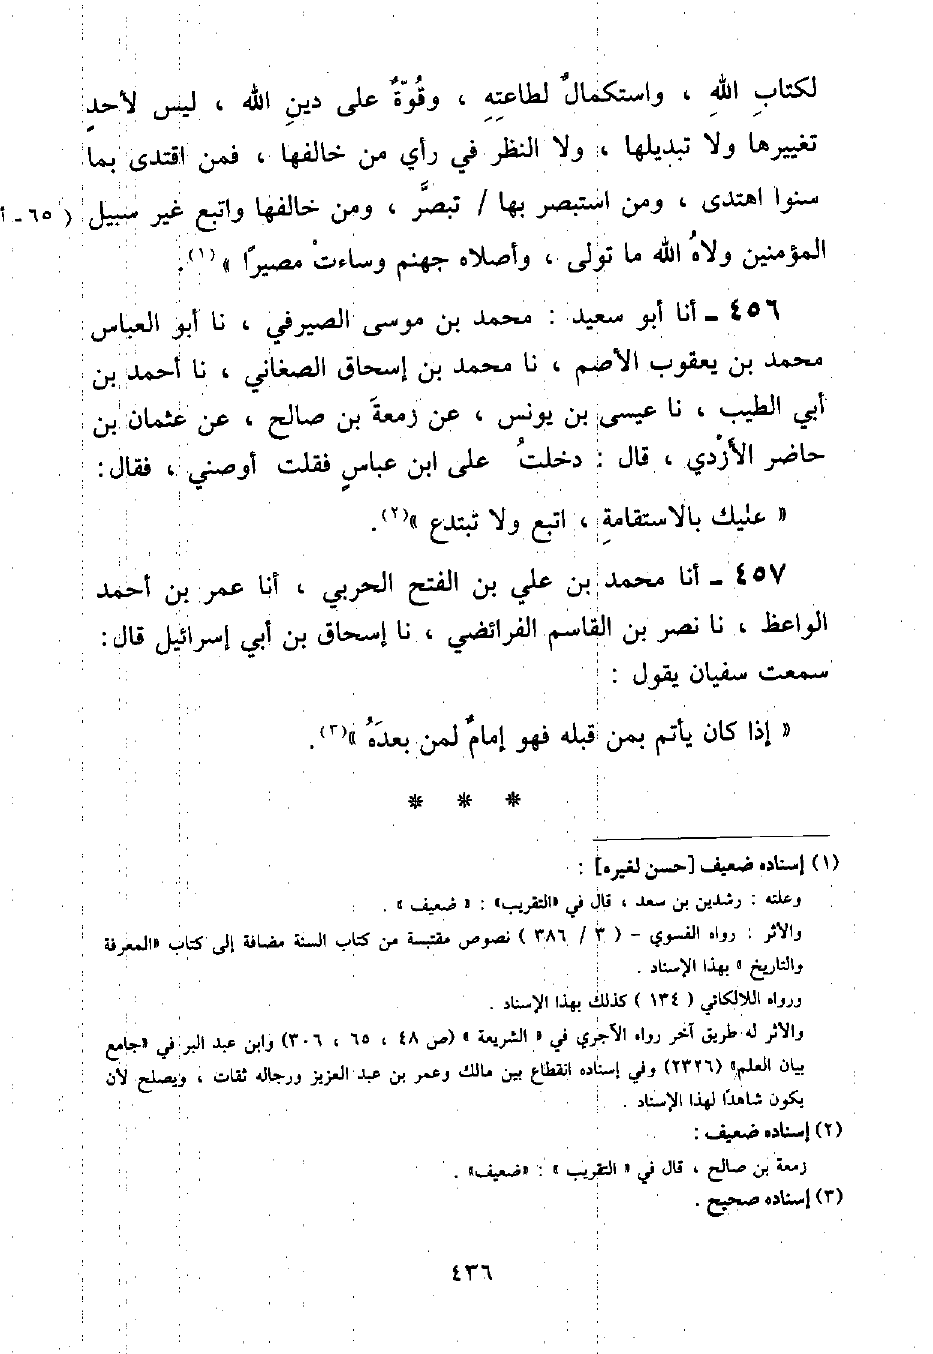 لكتابِ اللهِ ، واستكمالٌ لطاعتِهِ ، وقُوّةٌ على دينِ الله ، ليس لأحدٍ
تغييرها ولا تبديلها ، ولا النظر في رأي من خالفها ، فمن اقتدى بما
سنوا اهتدى ، ومن استبصر بها / تبصَّر ، ومن خالفها واتبع غير سبيل ( ٦٥ - أ
المؤمنين ولاهُ الله ما تولى ، وأصلاه جهنم وساءتْ مصيرًا »(١).
٤٥٦ ـ أنا أبو سعيد : محمد بن موسى الصيرفي ، نا أبو العباس
محمد بن يعقوب الأصم ، نا محمد بن إسحاق الصغاني ، نا أحمد بن
أبي الطيب ، نا عيسى بن يونس ، عن زمعةَ بن صالح ، عن عثمان بن
حاضر الأزْدي ، قال : دخلتُ على ابن عباسٍ فقلت أوصني ، فقال :
« عليك بالاستقامةِ ، اتبع ولا تبتدع »(٢).
٤٥٧ ـ أنا محمد بن علي بن الفتح الحربي ، أنا عمر بن أحمد
الواعظ ، نا نصر بن القاسم الفرائضي ، نا إسحاق بن أبي إسرائيل قال :
سمعت سفيان يقول :
« إذا كان يأتم بمن قبله فهو إمامٌ لمن بعدَهُ »(٣).
* * *
(١) إسناده ضعيف [حسن لغيره] :
وعلته : رشدين بن سعد ، قال في «التقريب» : « ضعيف » .
والأثر : رواه الفسوي - ( ٣ / ٣٨٦ ) نصوص مقتبسة من كتاب السنة مضافة إلى كتاب «المعرفة
والتاريخ » بهذا الإسناد .
ورواه اللالكائي ( ١٣٤ ) كذلك بهذا الإسناد .
والأثر له طريق آخر رواه الآجري في « الشريعة » (ص ٤٨ ، ٦٥ ، ٣٠٦) وابن عبد البر في «جامع
بيان العلم» (٢٣٢٦) وفي إسناده انقطاع بين مالك وعمر بن عبد العزيز ورجاله ثقات ، ويصلح لأن
يكون شاهدًا لهذا الإسناد .
(٢) إسناده ضعيف :
زمعة بن صالح ، قال في « التقريب » : «ضعيف» .
(٣) إسناده صحيح .
٤٣٦